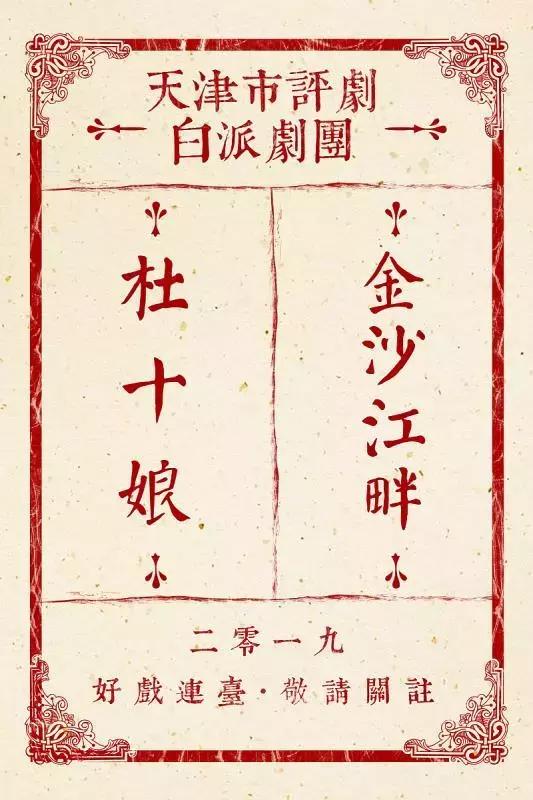 天津市評劇
白派劇團
金沙江畔
杜十娘
二零一九
好戲連臺·敬請關註